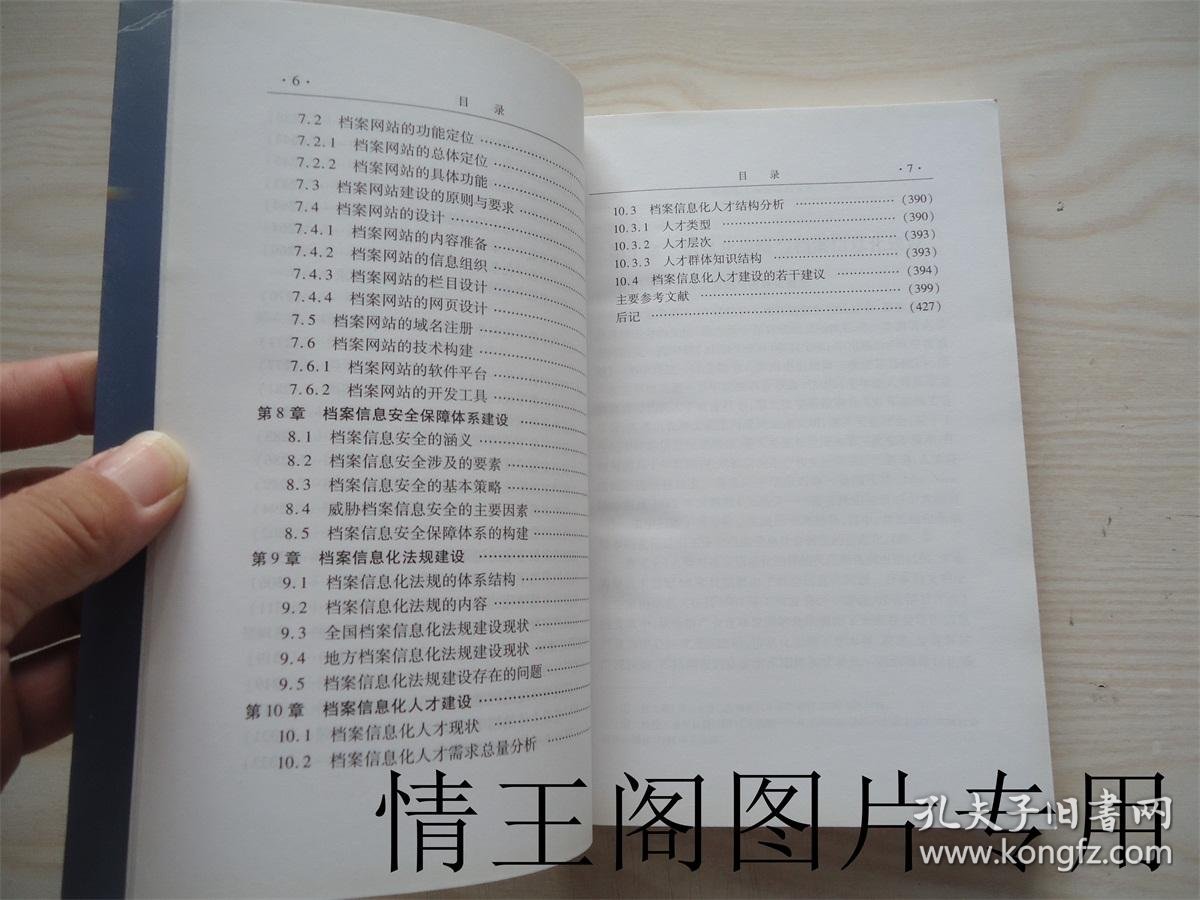 ·6·
目 录
7.2 档案网站的功能定位
7.2.1 档案网站的总体定位
7.2.2 档案网站的具体功能
7.3 档案网站建设的原则与要求
7.4 档案网站的设计
7.4.1 档案网站的内容准备
7.4.2 档案网站的信息组织
7.4.3 档案网站的栏目设计
7.4.4 档案网站的网页设计
7.5 档案网站的域名注册
7.6 档案网站的技术构建
7.6.1 档案网站的软件平台
7.6.2 档案网站的开发工具
第8章 档案信息安全保障体系建设
8.1 档案信息安全的涵义
8.2 档案信息安全涉及的要素
8.3 档案信息安全的基本策略
8.4 威胁档案信息安全的主要因素
8.5 档案信息安全保障体系的构建
第9章 档案信息化法规建设
9.1 档案信息化法规的体系结构
9.2 档案信息化法规的内容
9.3 全国档案信息化法规建设现状
9.4 地方档案信息化法规建设现状
9.5 档案信息化法规建设存在的问题
第10章 档案信息化人才建设
10.1 档案信息化人才现状
10.2 档案信息化人才需求总量分析
目 录
·7·
10.3 档案信息化人才结构分析 (390)
10.3.1 人才类型 (390)
10.3.2 人才层次 (393)
10.3.3 人才群体知识结构 (393)
10.4 档案信息化人才建设的若干建议 (394)
主要参考文献 (399)
后记 (427)
情王阁图片专用
孔夫子旧书网
www.kongfz.com